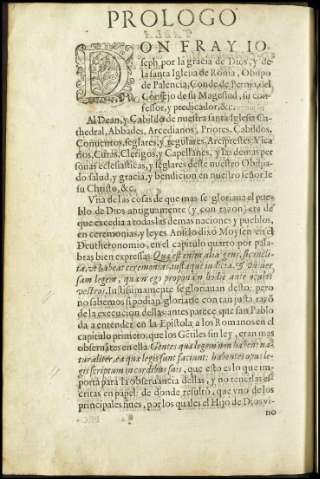 PROLOGO
DON FRAY IO-
seph, por la gracia de Dios, y de
la santa Iglesia de Roma, Obispo
de Palencia, Conde de Pernia, del
Consejo de su Magestad, su con-
fessor, y predicador, &c.
Al Dean, y Cabildo de nuestra santa Iglesia Ca-
thedral, Abbades, Arcedianos, Priores, Cabildos,
Conuentos, seglares, y regulares, Arciprestes, Vica
rios, Curas, Clerigos, y Capellanes, y las demas per
sonas ecclesiasticas, y seglares deste nuestro Obispa
do salud, y gracia, y bendicion en nuestro señor Ie
su Christo, &c.
Vna de las cosas de que mas se gloriaua el pue
blo de Dios antiguamente (y con razon) era de
que excedia a todas las demas naciones y pueblos,
en ceremonias, y leyes. Assi lo dixo Moysen en el
Deutheronomio, en el capitulo quarto por pala-
bras bien expressas. Quæ est enim alia gens, sic incli-
ta, vt habeat ceremonias, iustaque iudicia, & vniuer
sam legem, quam ego proponam hodie ante oculos
vestros. Iustissimamente se gloriauan desto: pero
no sabemos si podian gloriarse con tan justa razõ
de la execucion dellas: antes parece que san Pablo
da a entender en la Epistola a los Romanos en el
capitulo primero, que los Gẽtiles sin ley, eran mas
obseruãtes en ella: Gentes quæ legem non habent na
turaliter, ea quæ legis sunt faciunt: habentes opus le-
gis scriptum in cordibus suis, que esto es lo que im-
porta para la obseruancia dellas, y no tenerlas es-
critas en papel: de donde resultò, que vno de los
principales fines, por los quales el Hijo de Dios vi
no